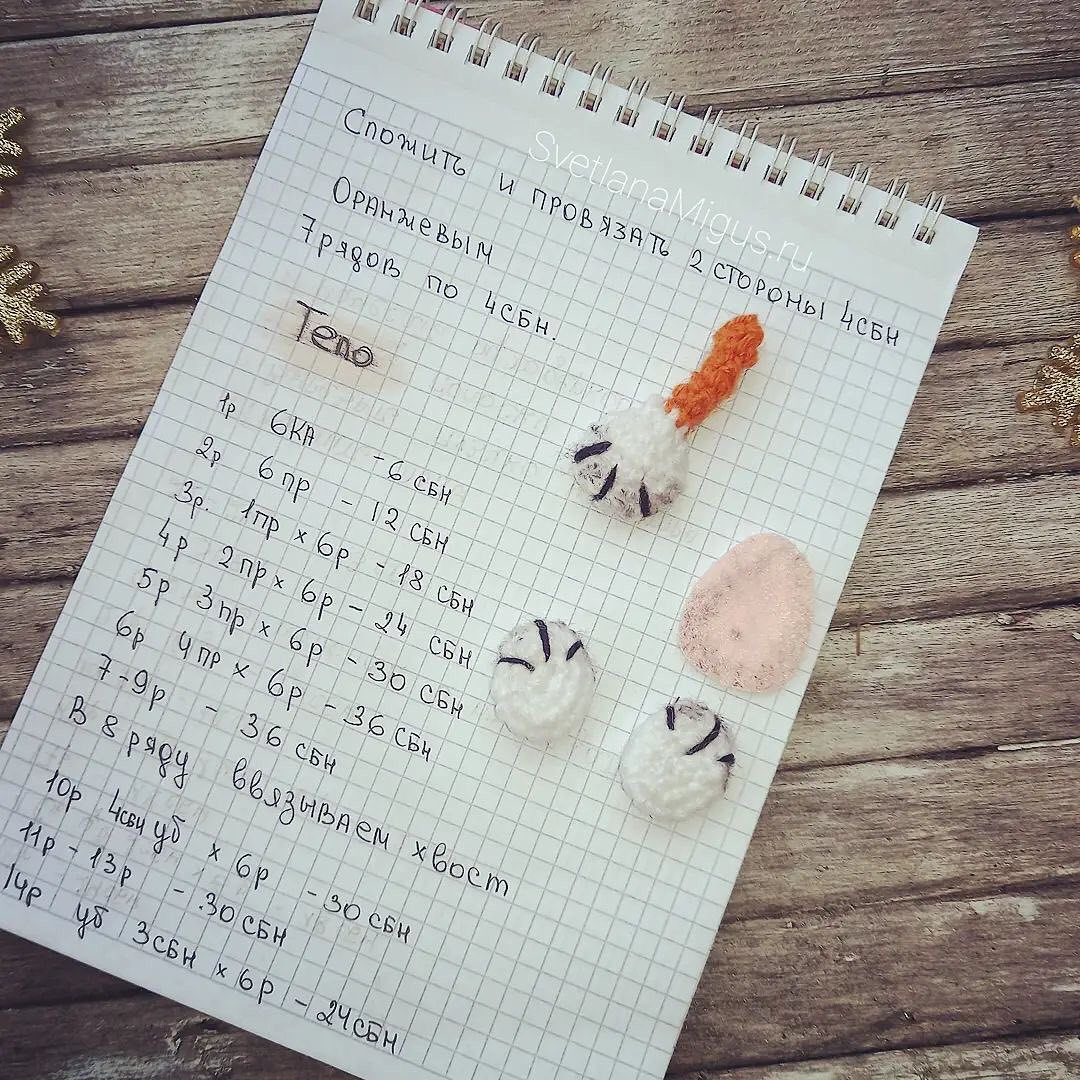 Сложить и провязать 2 стороны 4сбн
Оранжевым
7 рядов по 4сбн.
Тело
1р 6КА - 6 сбн
2р 6 пр - 12 сбн
3р. 1пр х 6р - 18 сбн
4р 2 пр х 6р - 24 сбн
5р 3 пр х 6р - 30 сбн
6р 4 пр х 6р - 36 сбн
7-9р - 36 сбн
В 8 ряду ввязываем хвост
10р 4сбн уб х 6р - 30 сбн
11р - 13р - 30 сбн
14р уб 3сбн х 6р - 24сбн
SvetlanaMigus.ru